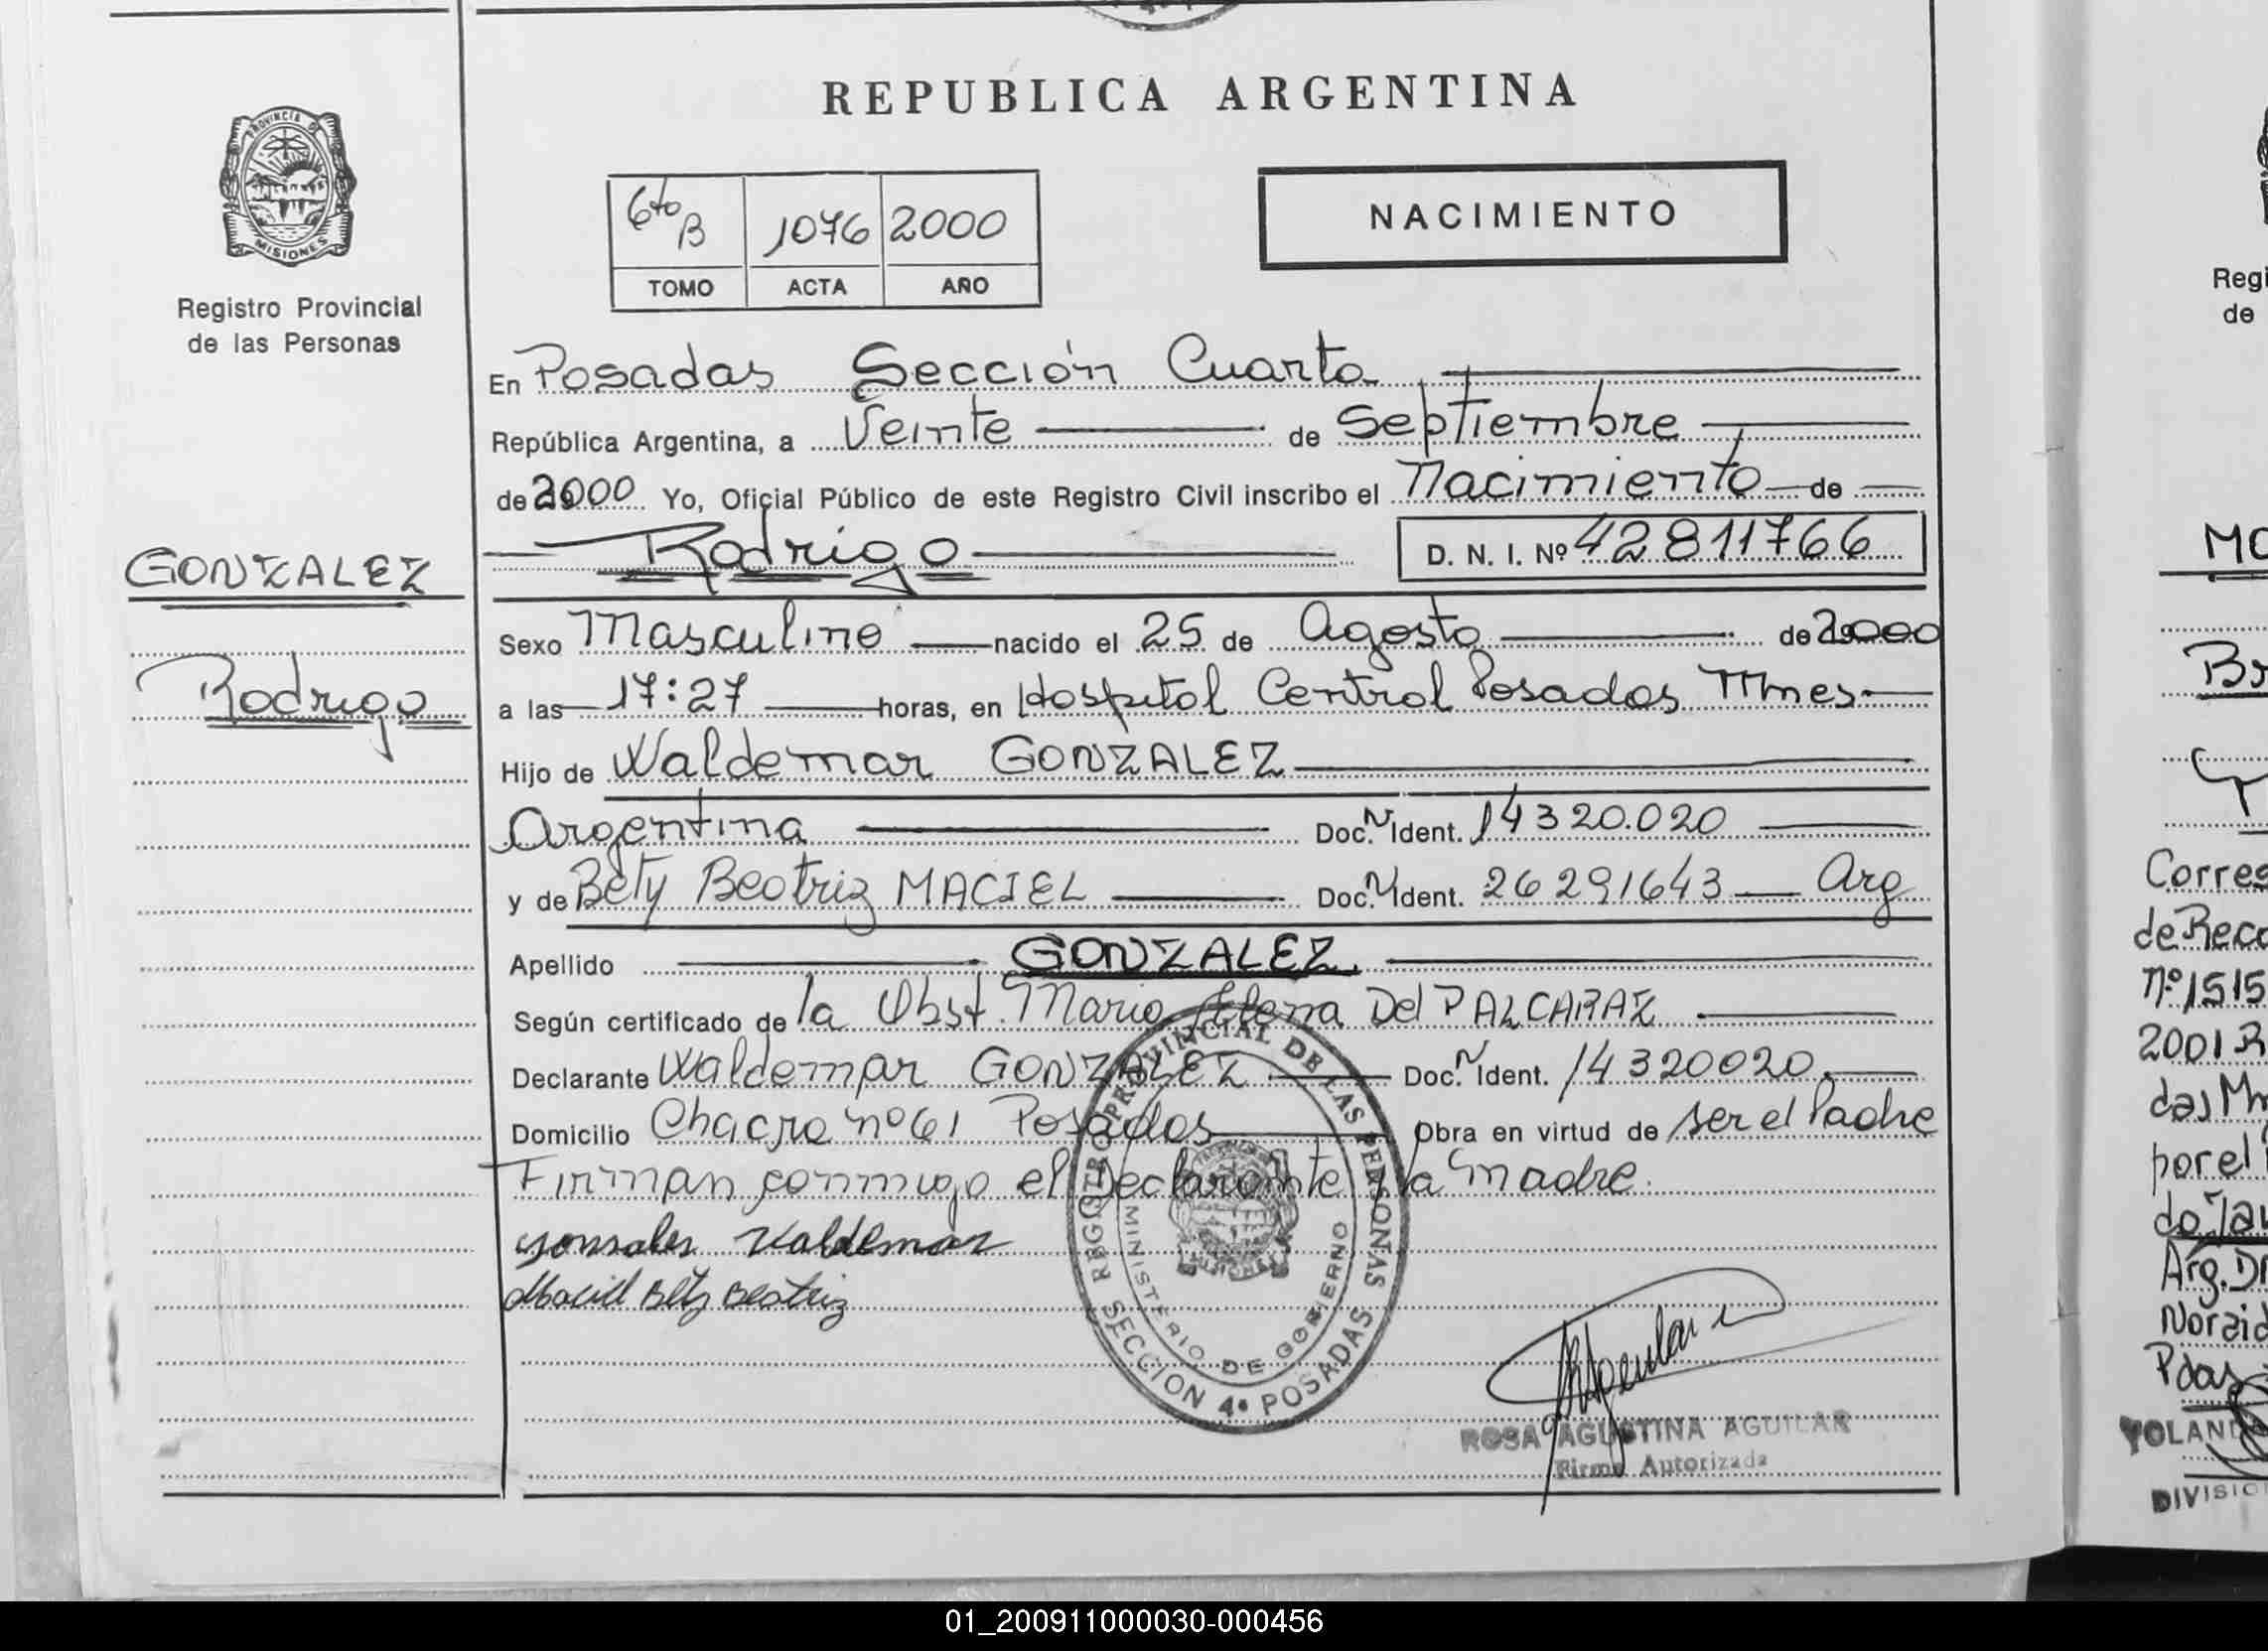 REPUBLICA ARGENTINA
PROVINCIA D MISIONES
Registro Provincial
de las Personas
6to B 1076 2000
TOMO ACTA AÑO
NACIMIENTO
En Posadas Sección Cuarta
República Argentina, a Veinte de Septiembre
de 2000 Yo, Oficial Público de este Registro Civil inscribo el Nacimiento de
Rodrigo D. N. I. Nº 42811766
GONZALEZ
Rodrigo
Sexo Masculino nacido el 25 de Agosto de 2000
a las 17:27 horas, en Hospital Central Posadas Mnes
Hijo de Waldemar GONZALEZ
Argentina Doc. N Ident. 14320.020
y de Bety Beatriz MACIEL Doc. N Ident. 26291643 Arg
Apellido GONZALEZ.
Según certificado de la Obst. Maria Elena Del P ALCARAZ
Declarante Waldemar GONZALEZ Doc. N Ident. 14320020
Domicilio Chacra nº 61 Posadas Obra en virtud de ser el Padre
Firman conmigo el Declarante y la madre.
Gonsales Valdemar
Maciel Bety Beatriz
REGISTRO PROVINCIAL DE LAS PERSONAS
MINISTERIO DE GOBIERNO
SECCION 4ª POSADAS
ROSA AGUSTINA AGUILAR
Firma Autorizada
Regi
de
MO
Br
Corres
de Reco
nº 1515
2001 R
das Mn
por el
do
Arg. D
Pdas
YOLAND
DIVISIO
01_200911000030-000456